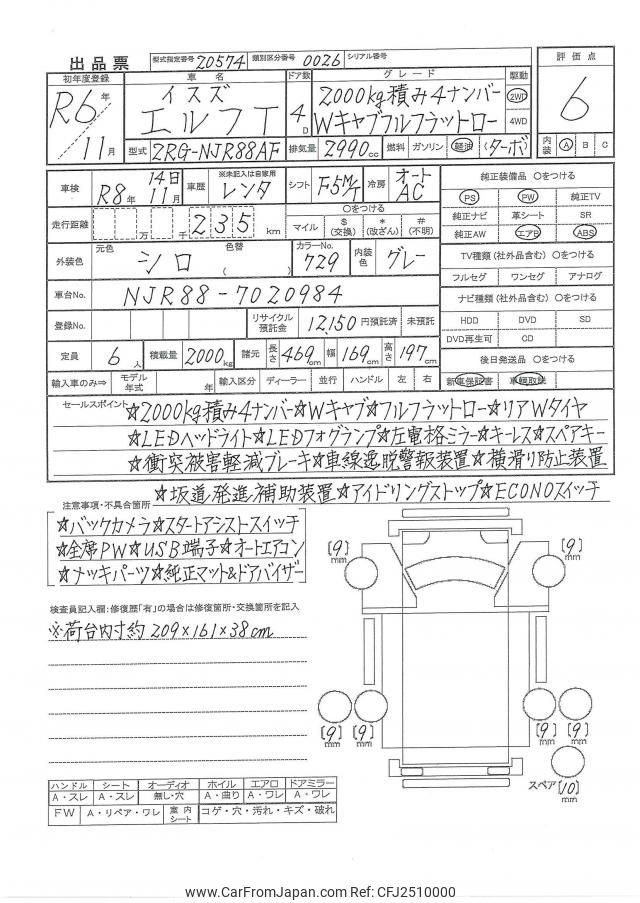 出品票 型式指定番号 20574 類別区分番号 0026 シリアル番号
評価点
6
内装 A B C
初年度登録 車名 ドア数 グレード 駆動
R6年 11月
イスズ
エルフT
4D
2000kg積み4ナンバー
Wキャブフルフラットロー
2WD
4WD
型式 2RG-NJR88AF 排気量 2990cc 燃料 ガソリン 軽油 (ターボ)
車検 R8年 14日 11月 車歴 ※未記入は自家用 レンタ シフト F5M/T 冷房 オートAC
走行距離 十万 千 235 km
〇をつける
マイル $(交換) *(改ざん) #(不明)
外装色 元色 シロ 色替 ( ) カラーNo. 729 内装色 グレー
車台No. NJR88-7020984
登録No. リサイクル預託金 12,150 円預託済 未預託
定員 6人 積載量 2000kg 諸元 長さ 469cm 幅 169cm 高さ 197cm
輸入車のみ⇒ モデル年式 年 輸入区分 ディーラー 並行 ハンドル 左 右
純正装備品 〇をつける
PS PW 純正TV
純正ナビ 革シート SR
純正AW エアB ABS
TV種類(社外品含む) 〇をつける
フルセグ ワンセグ アナログ
ナビ種類(社外品含む) 〇をつける
HDD DVD SD
DVD再生可 CD
後日発送品 〇をつける
新車保証書 車輌取説
セールスポイント ☆2000kg積み4ナンバー☆Wキャブ☆フルフラットロー☆リアWタイヤ
☆LEDヘッドライト☆LEDフォグランプ☆左電格ミラー☆キーレス☆スペアキー
☆衝突被害軽減ブレーキ☆車線逸脱警報装置☆横滑り防止装置
☆坂道発進補助装置☆アイドリングストップ☆ECONOスイッチ
注意事項・不具合箇所
☆バックカメラ☆スタートアシストスイッチ
☆全席PW☆USB端子☆オートエアコン
☆メッキパーツ☆純正マット&ドアバイザー
検査員記入欄:修復歴「有」の場合は修復箇所・交換箇所を記入
※荷台内寸約209×161×38cm
[9]mm [9]mm
[9]mm [9]mm [9]mm [9]mm
スペア [10]mm
ハンドル シート オーディオ ホイル エアロ ドアミラー
A・スレ A・スレ 無し・穴 A・曲り A・ワレ A・ワレ
FW A・リペア・ワレ 室内シート コゲ・穴・汚れ・キズ・破れ
www.CarFromJapan.com Ref: CFJ2510000